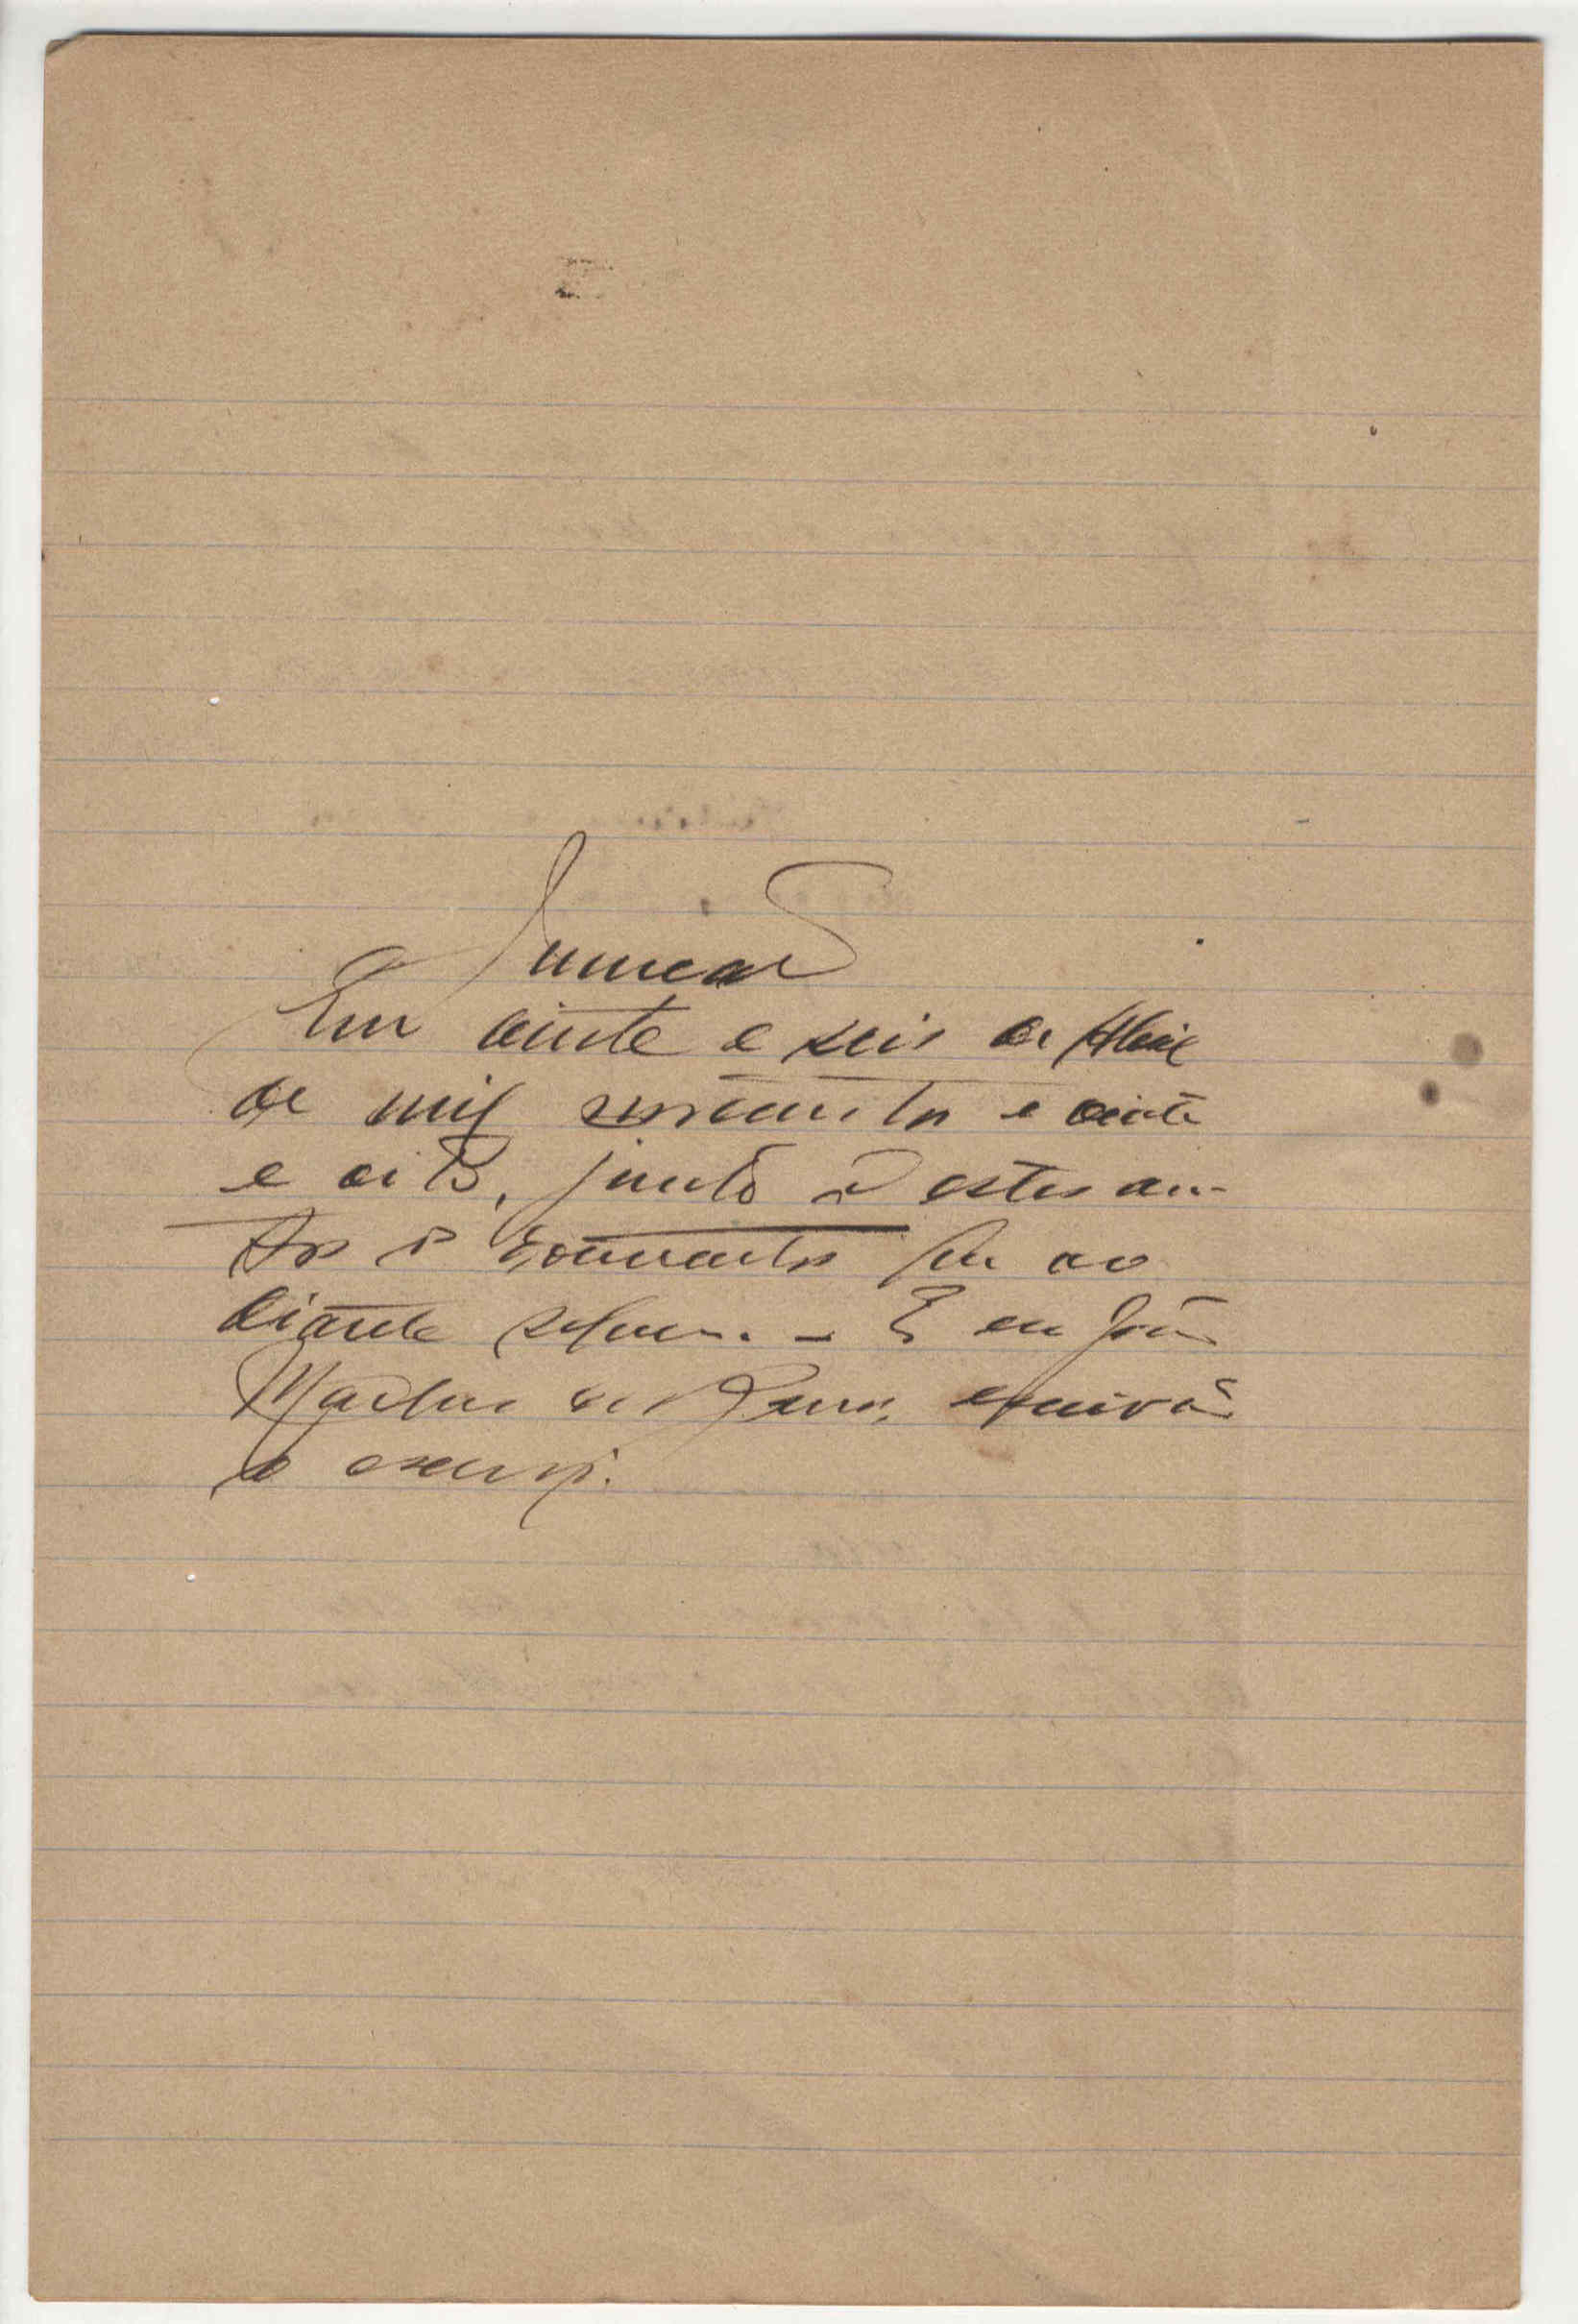 Juntada
Em vinte e seis de Abril
de mil novecentos e vinte
e oito, junto a estes au-
tos o documento que ao
diante segue. — E eu João
Martins de escrivão
o escrevi.